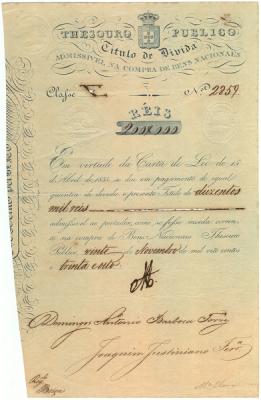 THESOURO PUBLICO
Titulo de Divida
ADMISSIVEL NA COMPRA DE BENS NACIONAES
Classe N.º 2259
RÉIS
200$000
Em virtude da Carta de Lei de 15
de Abril de 1835 se deu em pagamento de igual
quantia de divida o presente Titulo de duzentos
mil réis
admissivel ao portador, como se fosse moeda corren-
te na compra de Bens Nacionaes. Thesouro
Publico, vinte de Novembro de mil oito centos
e trinta e oito
Domingos Antonio Barbosa
Joaquim Justiniano